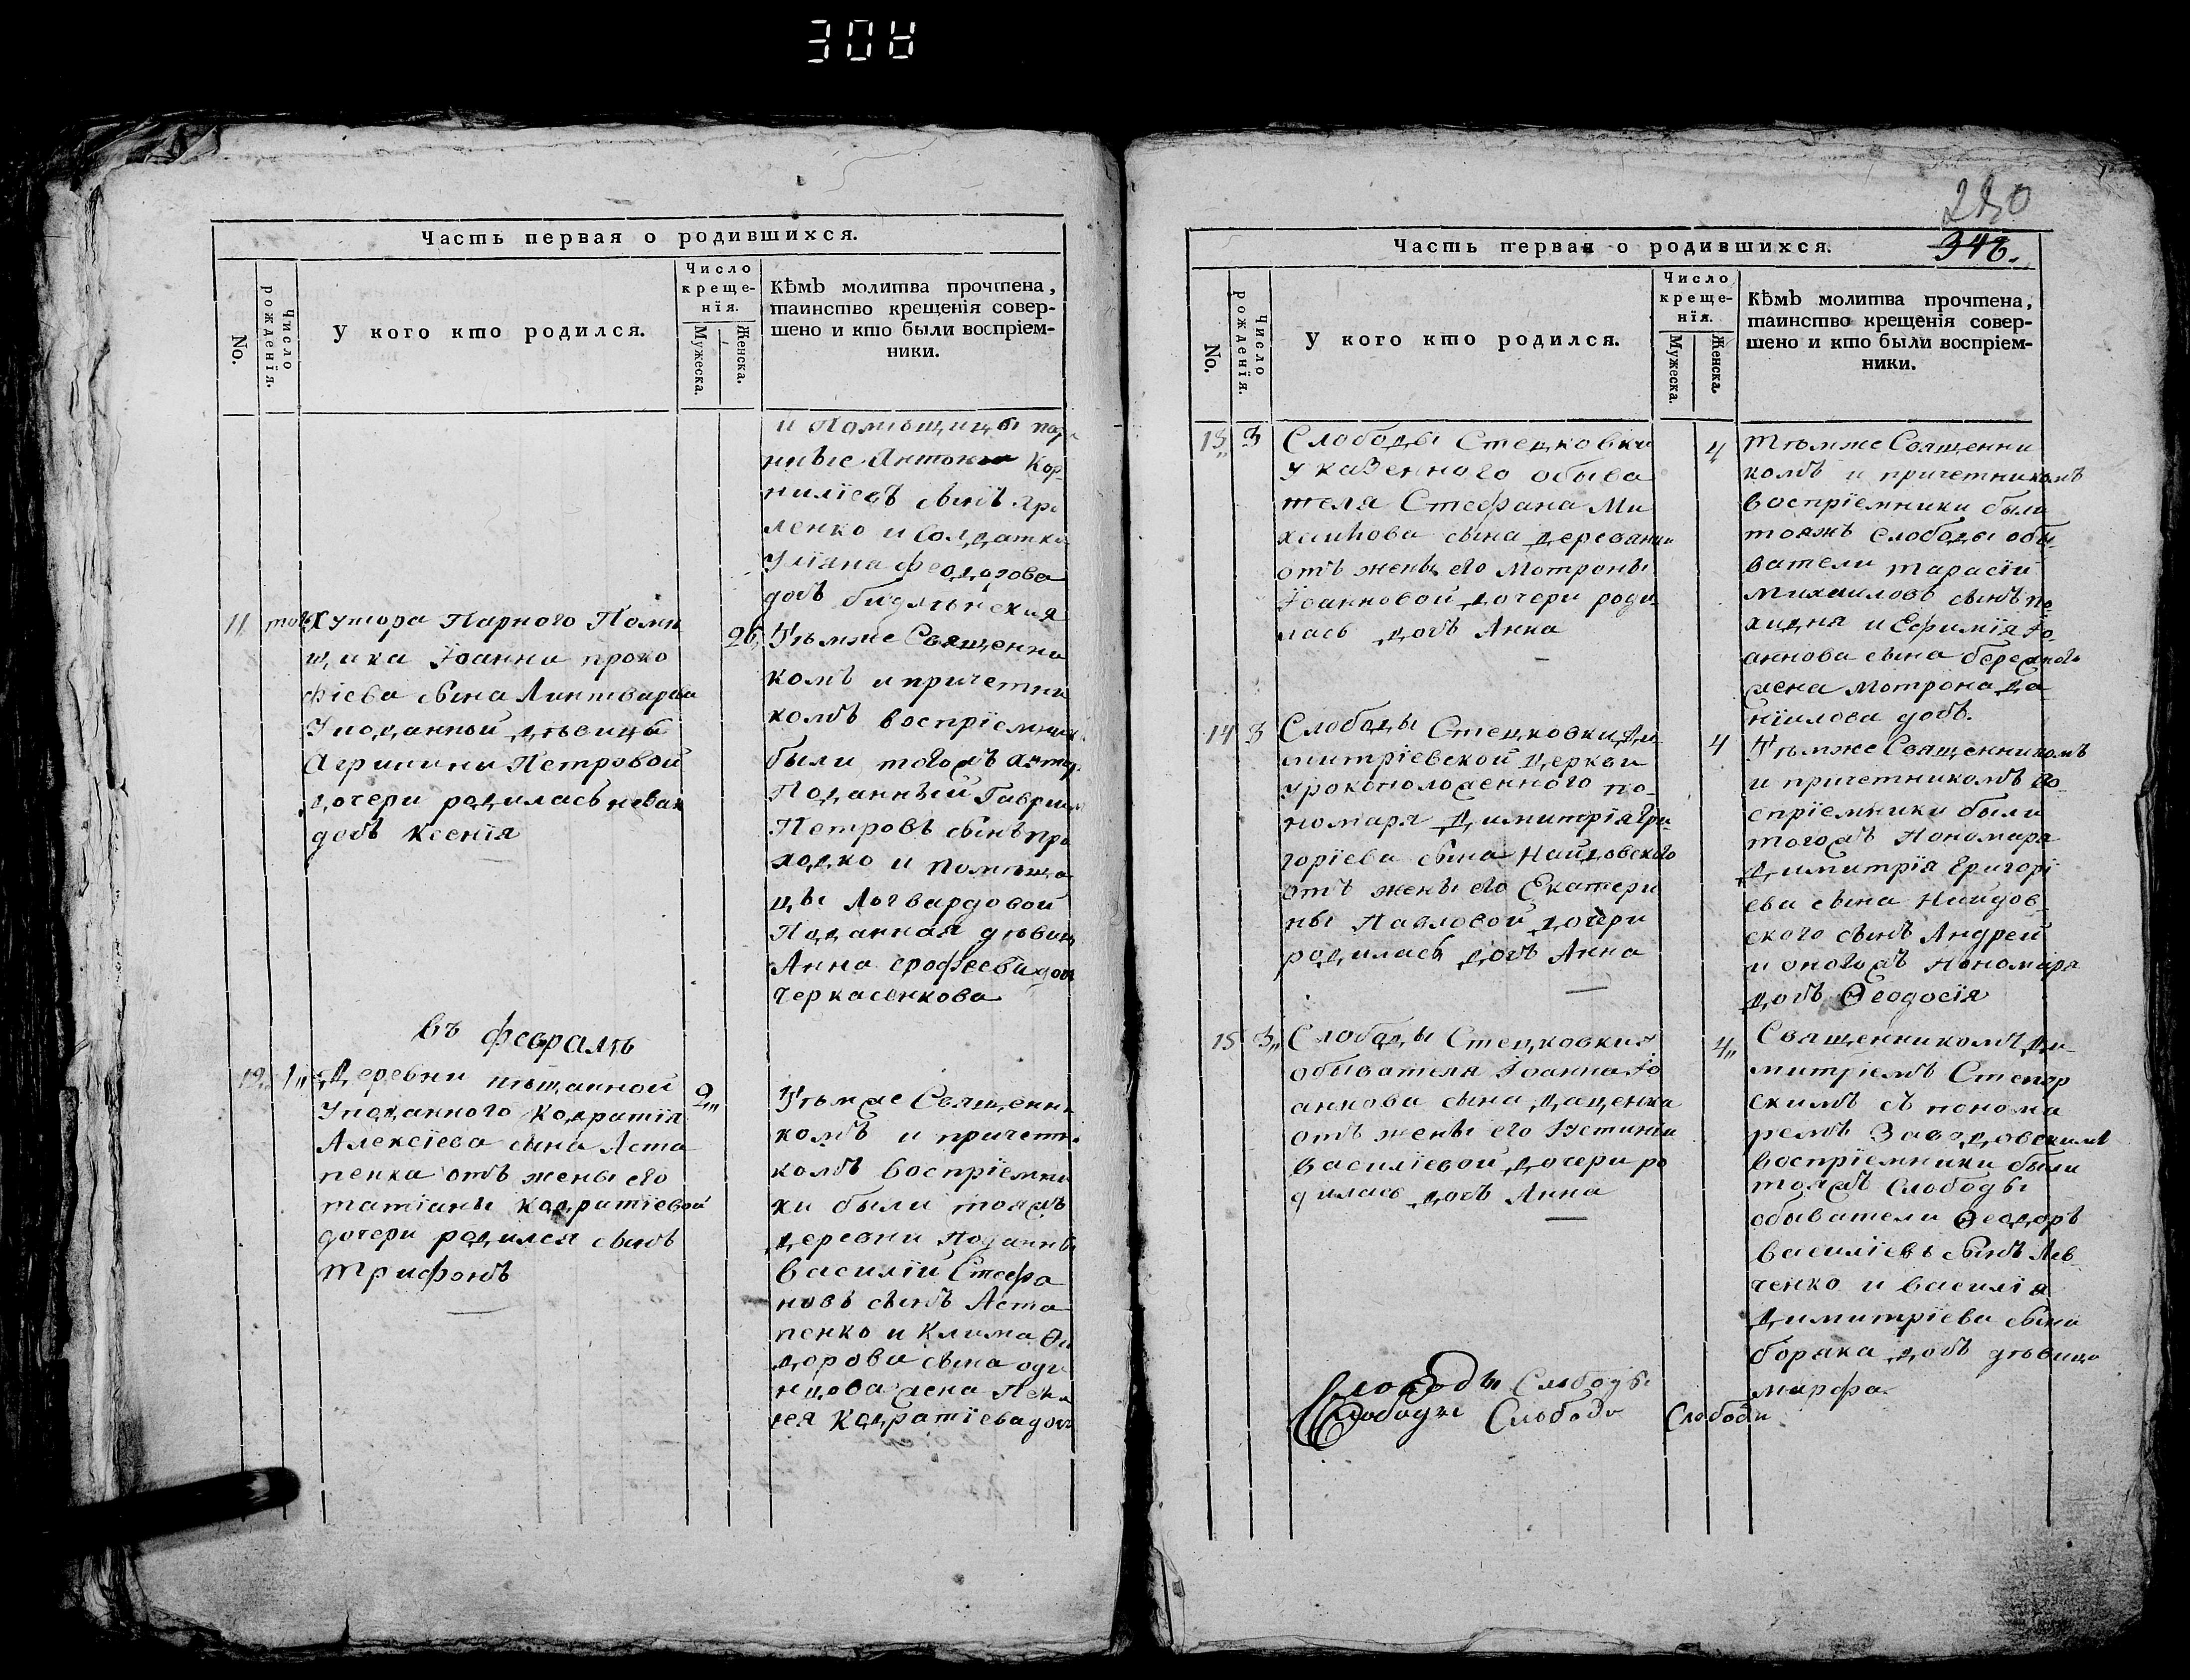 308
Часть первая о родившихся.
No.
Число рожденїя.
У кого кто родился.
Число крещенїя.
Мужеска.
Женска.
Кѣмъ молитва прочтена,
таинство крещенїя совер-
шено и кто были воспрїем-
ники.
и Помѣщицы под
нные Антонъ Кор
нилїевъ сынъ
ленко и Солдатка
Улїяна Феодорова
дочь
11
Хутора Парного Поми
щика Іоанна проко
фїева сына Линтварева
У поданной дѣвицы
Агрипины Петровой
дочери родилась
дочь Ксенїя
26
Тѣмже Священни
комъ и причетни
комъ воспрїемники
были тогожъ
Поданный Гаврїилъ
Петровъ сынъ при
ходко и Помѣщи
цы Логвардовой
Поданная дѣвица
Анна ерофеева дочь
Черкасенкова
въ февралѣ
12 1
Деревни пѣщанной
У поданного Кодратїя
Алексїева сына Аста
пенка отъ жены его
татїаны Кодратїевой
дочери родился сынъ
Трифонъ
2
Тѣмже Священни
комъ и причетни
комъ воспрїемни
ки были тояжъ
деревни поданные
Василїй Стефа
новъ сынъ Аста
пенко и Клима Фи
дорова сына оди
нцова жена Пела
гея Кодратїева дочь
280
348.
Часть первая о родившихся.
No.
Число рожденїя.
У кого кто родился.
Число крещенїя.
Мужеска.
Женска.
Кѣмъ молитва прочтена,
таинство крещенїя совер-
шено и кто были воспрїем-
ники.
13 3
Слободы Стецковки
У казенного обыва
теля Стефана Ми
хайлова сына деревянки
отъ жены его Мотроны
Іоанновой дочери роди
лась дочь Анна
4
Тѣмже Священни
комъ и причетникомъ
воспрїемники были
тояжъ слободы обы
ватели тарасїй
Михаиловъ сынъ по
хидня и Ефимїя Іо
аннова сына
жена Мотрона Да
нїилова дочь.
14 3
Слободы Стецковки Ди
митрїевской Церкви
У рокоположенного по
номаря Димитрїя Гри
горїева сына Найдовского
отъ жены его Екатери
ны Павловой дочери
родилась дочь Анна
4
Тѣмже Священникомъ
и причетникомъ во
спрїемники были
тогожъ Пономаря
Димитрїя Григорї
ева сына Найдов
ского сынъ Андрей
и оногожъ Пономаря
дочь Ѳеодосїя
15 3
Слободы Стецковки У
обывателя Іоанна Іо
аннова сына Даценка
отъ жены его Іустинїи
Василїевой дочери ро
дилась дочь Анна
4
Священникомъ Ди
митрїемъ Степур
скимъ съ понома
ремъ Заводовскимъ
воспрїемники были
тояжъ слободы
обыватели Ѳеодоръ
Василїевъ сынъ Лев
ченко и Василїя
Димитрїева сына
боряка дочь дѣвица
марфа.
Слободы Слободы
Слободы Слободы Слободы